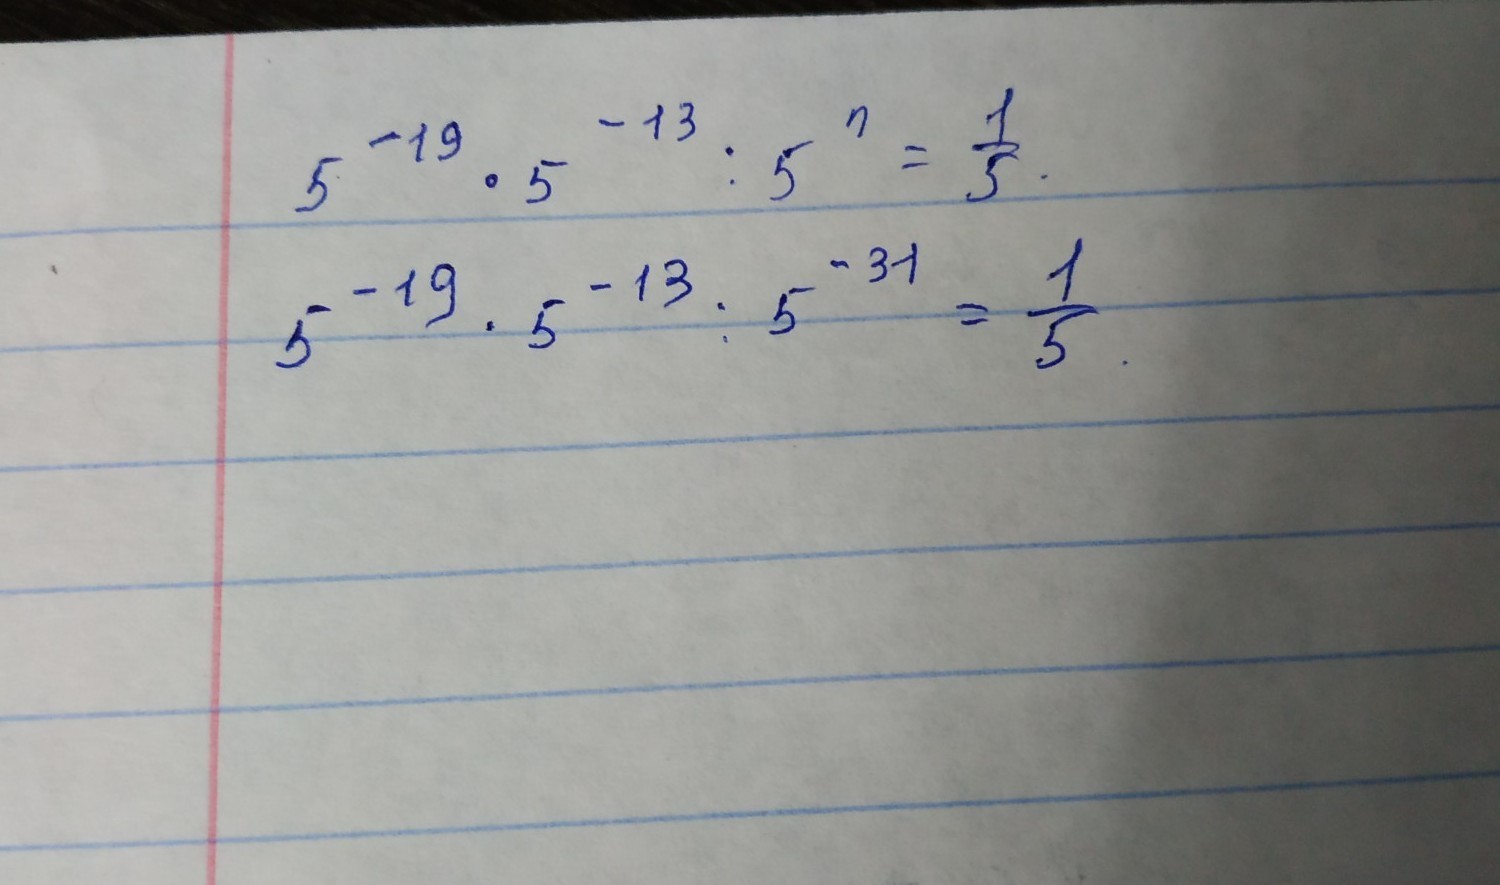 5^{-19} · 5^{-13} : 5^{n} = \frac{1}{5}.
5^{-19} · 5^{-13} : 5^{-31} = \frac{1}{5}.